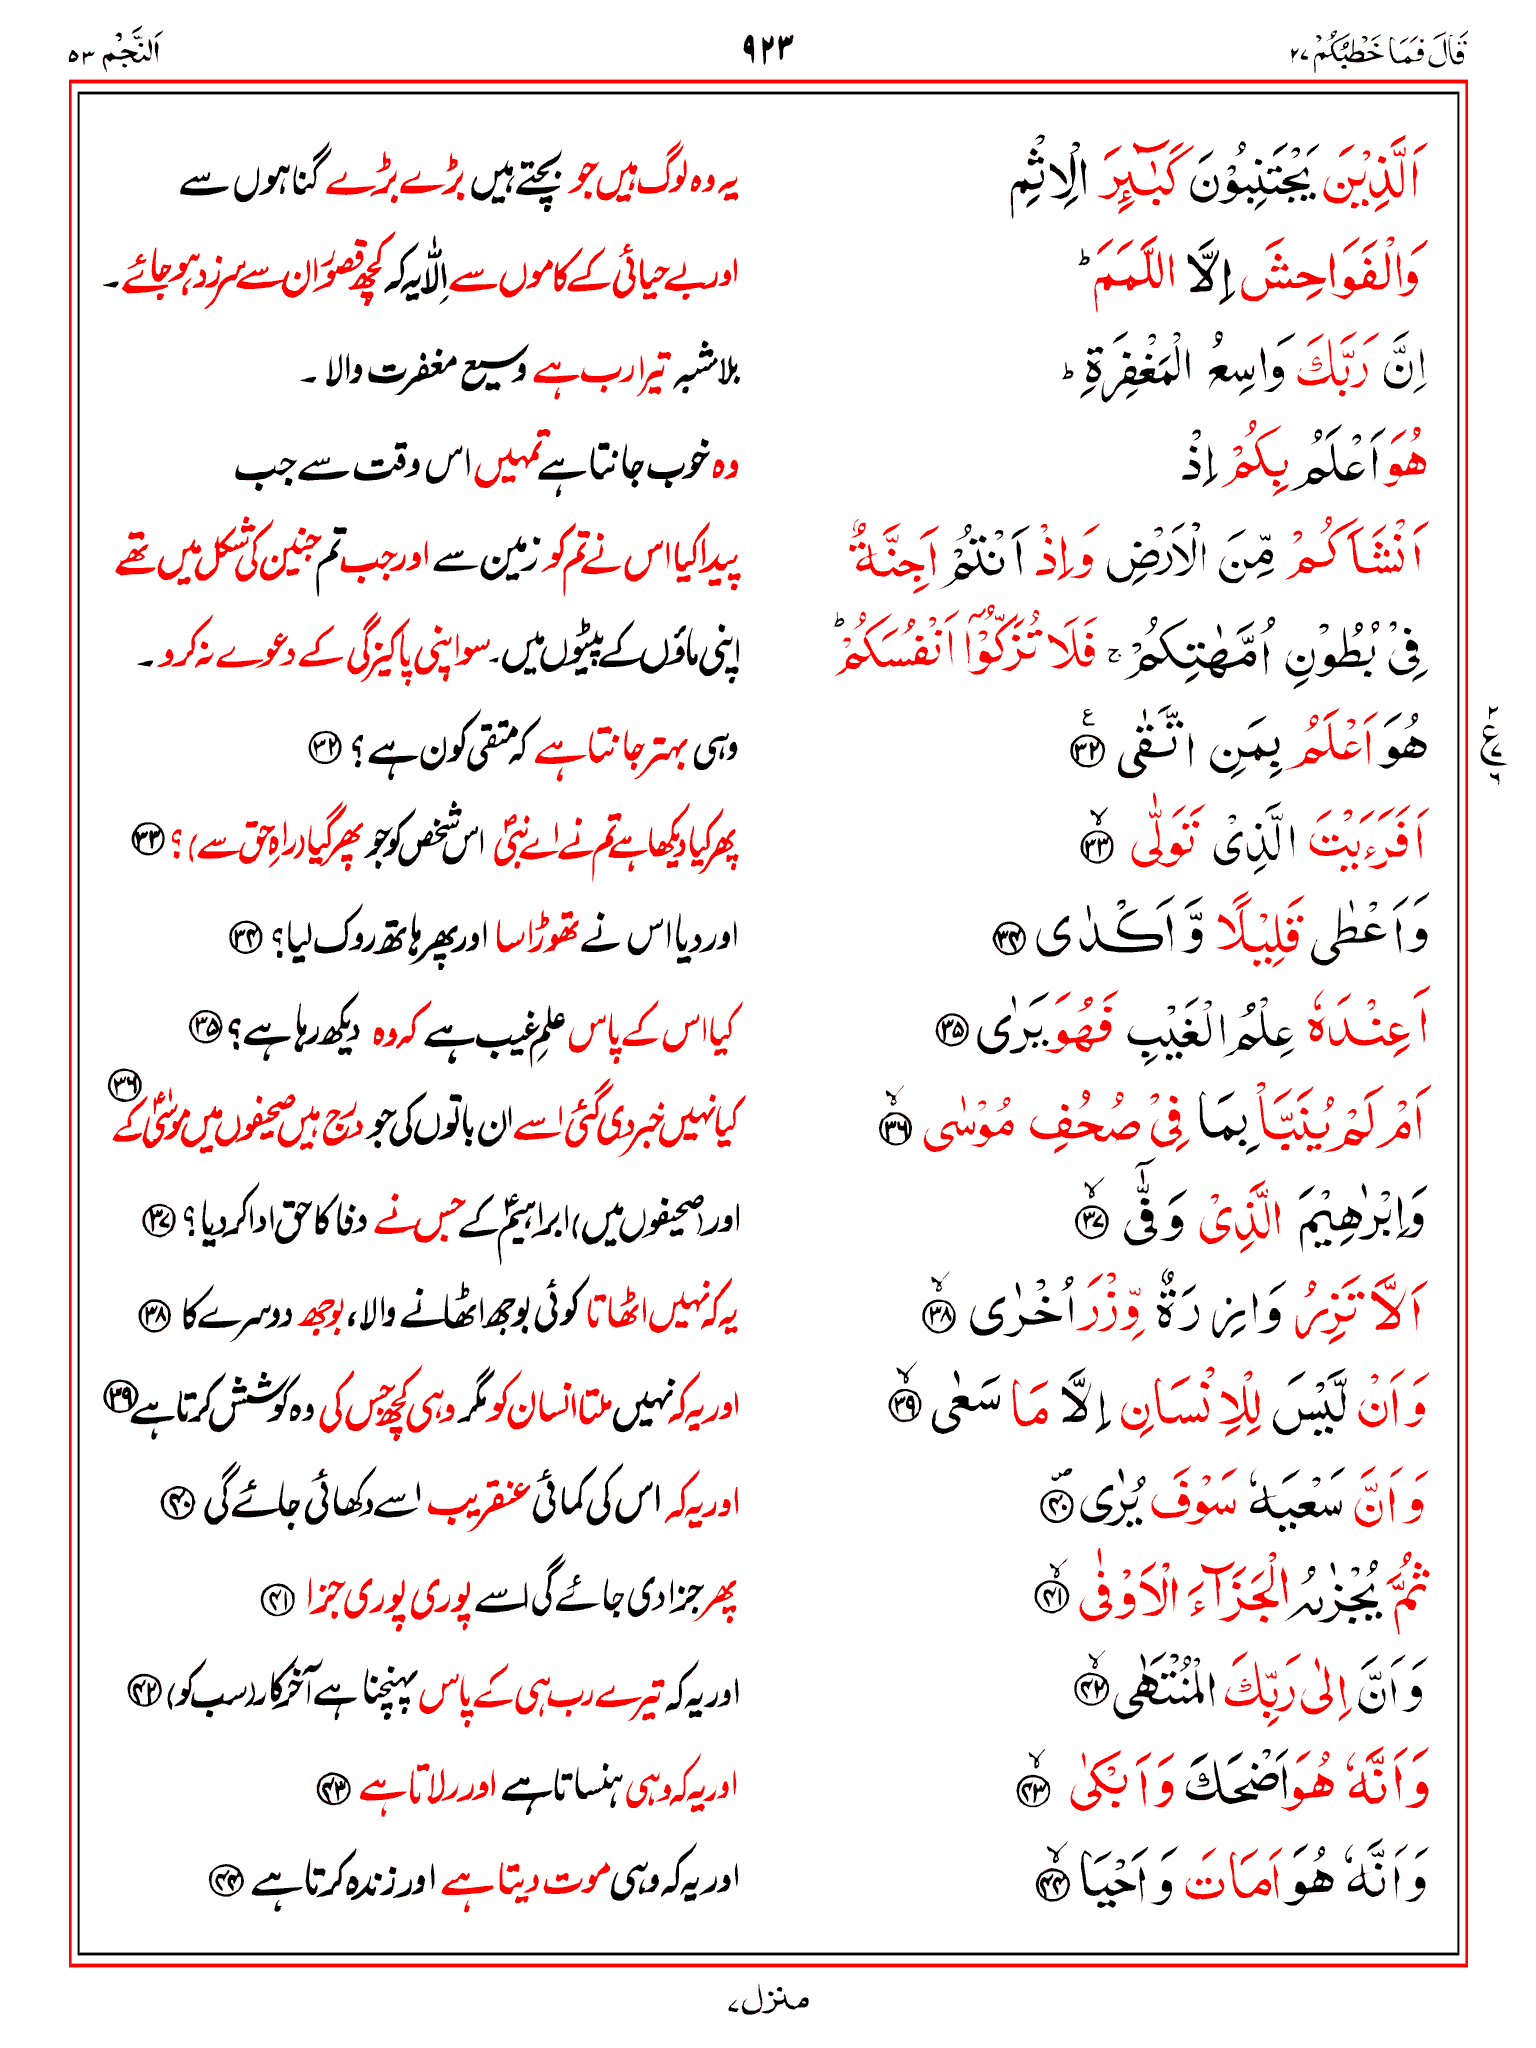 قَالَ فَمَا خَطْبُكُمْ ٢٧ ٩٢٣ اَلنَّجْم ٥٣
اَلَّذِيْنَ يَجْتَنِبُوْنَ كَبٰٓئِرَ الْاِثْمِ یہ وہ لوگ ہیں جو بچتے ہیں بڑے بڑے گناہوں سے
وَالْفَوَاحِشَ اِلَّا اللَّمَمَ ؕ اور بے حیائی کے کاموں سے اِلّا یہ کہ کچھ قصور اُن سے سرزد ہو جائے۔
اِنَّ رَبَّكَ وَاسِعُ الْمَغْفِرَةِ ؕ بلاشبہ تیرا رب ہے وسیع مغفرت والا۔
هُوَ اَعْلَمُ بِكُمْ اِذْ وہ خوب جانتا ہے تمہیں اس وقت سے جب
اَنْشَاَكُمْ مِّنَ الْاَرْضِ وَاِذْ اَنْتُمْ اَجِنَّةٌ پیدا کیا اس نے تم کو زمین سے اور جب تم جنین کی شکل میں تھے
فِيْ بُطُوْنِ اُمَّهٰتِكُمْ ۚ فَلَا تُزَكُّوْۤا اَنْفُسَكُمْ ؕ اپنی ماؤں کے پیٹوں میں۔ سو اپنی پاکیزگی کے دعوے نہ کرو۔
هُوَ اَعْلَمُ بِمَنِ اتَّقٰى ٣٢ ع وہی بہتر جانتا ہے کہ متقی کون ہے؟ ٣٢
اَفَرَءَيْتَ الَّذِيْ تَوَلّٰى ۙ٣٣ پھر کیا دیکھا ہے تم نے اے نبیؐ اس شخص کو جو پھر گیا (راہِ حق سے)؟ ٣٣
وَاَعْطٰى قَلِيْلًا وَّاَكْدٰى ٣٤ اور دیا اس نے تھوڑا سا اور پھر ہاتھ روک لیا؟ ٣٤
اَعِنْدَهٗ عِلْمُ الْغَيْبِ فَهُوَ يَرٰى ٣٥ کیا اس کے پاس علمِ غیب ہے کہ وہ دیکھ رہا ہے؟ ٣٥
اَمْ لَمْ يُنَبَّاْ بِمَا فِيْ صُحُفِ مُوْسٰى ۙ٣٦ کیا نہیں خبر دی گئی اسے ان باتوں کی جو درج ہیں صحیفوں میں موسٰیؑ کے ٣٦
وَاِبْرٰهِيْمَ الَّذِيْ وَفّٰٓى ۙ٣٧ اور (صحیفوں میں) ابراہیمؑ کے جس نے وفا کا حق ادا کر دیا؟ ٣٧
اَلَّا تَزِرُ وَازِرَةٌ وِّزْرَ اُخْرٰى ۙ٣٨ یہ کہ نہیں اٹھاتا کوئی بوجھ اٹھانے والا، بوجھ دوسرے کا ٣٨
وَاَنْ لَّيْسَ لِلْاِنْسَانِ اِلَّا مَا سَعٰى ۙ٣٩ اور یہ کہ نہیں ملتا انسان کو مگر وہی کچھ جس کی وہ کوشش کرتا ہے ٣٩
وَاَنَّ سَعْيَهٗ سَوْفَ يُرٰى ۪٤٠ اور یہ کہ اس کی کمائی عنقریب اسے دکھائی جائے گی ٤٠
ثُمَّ يُجْزٰىهُ الْجَزَآءَ الْاَوْفٰى ۙ٤١ پھر جزا دی جائے گی اسے پوری پوری جزا ٤١
وَاَنَّ اِلٰى رَبِّكَ الْمُنْتَهٰى ۙ٤٢ اور یہ کہ تیرے رب ہی کے پاس پہنچنا ہے آخرکار (سب کو) ٤٢
وَاَنَّهٗ هُوَ اَضْحَكَ وَاَبْكٰى ۙ٤٣ اور یہ کہ وہی ہنساتا ہے اور رلاتا ہے ٤٣
وَاَنَّهٗ هُوَ اَمَاتَ وَاَحْيَا ۙ٤٤ اور یہ کہ وہی موت دیتا ہے اور زندہ کرتا ہے ٤٤
منزل ٧